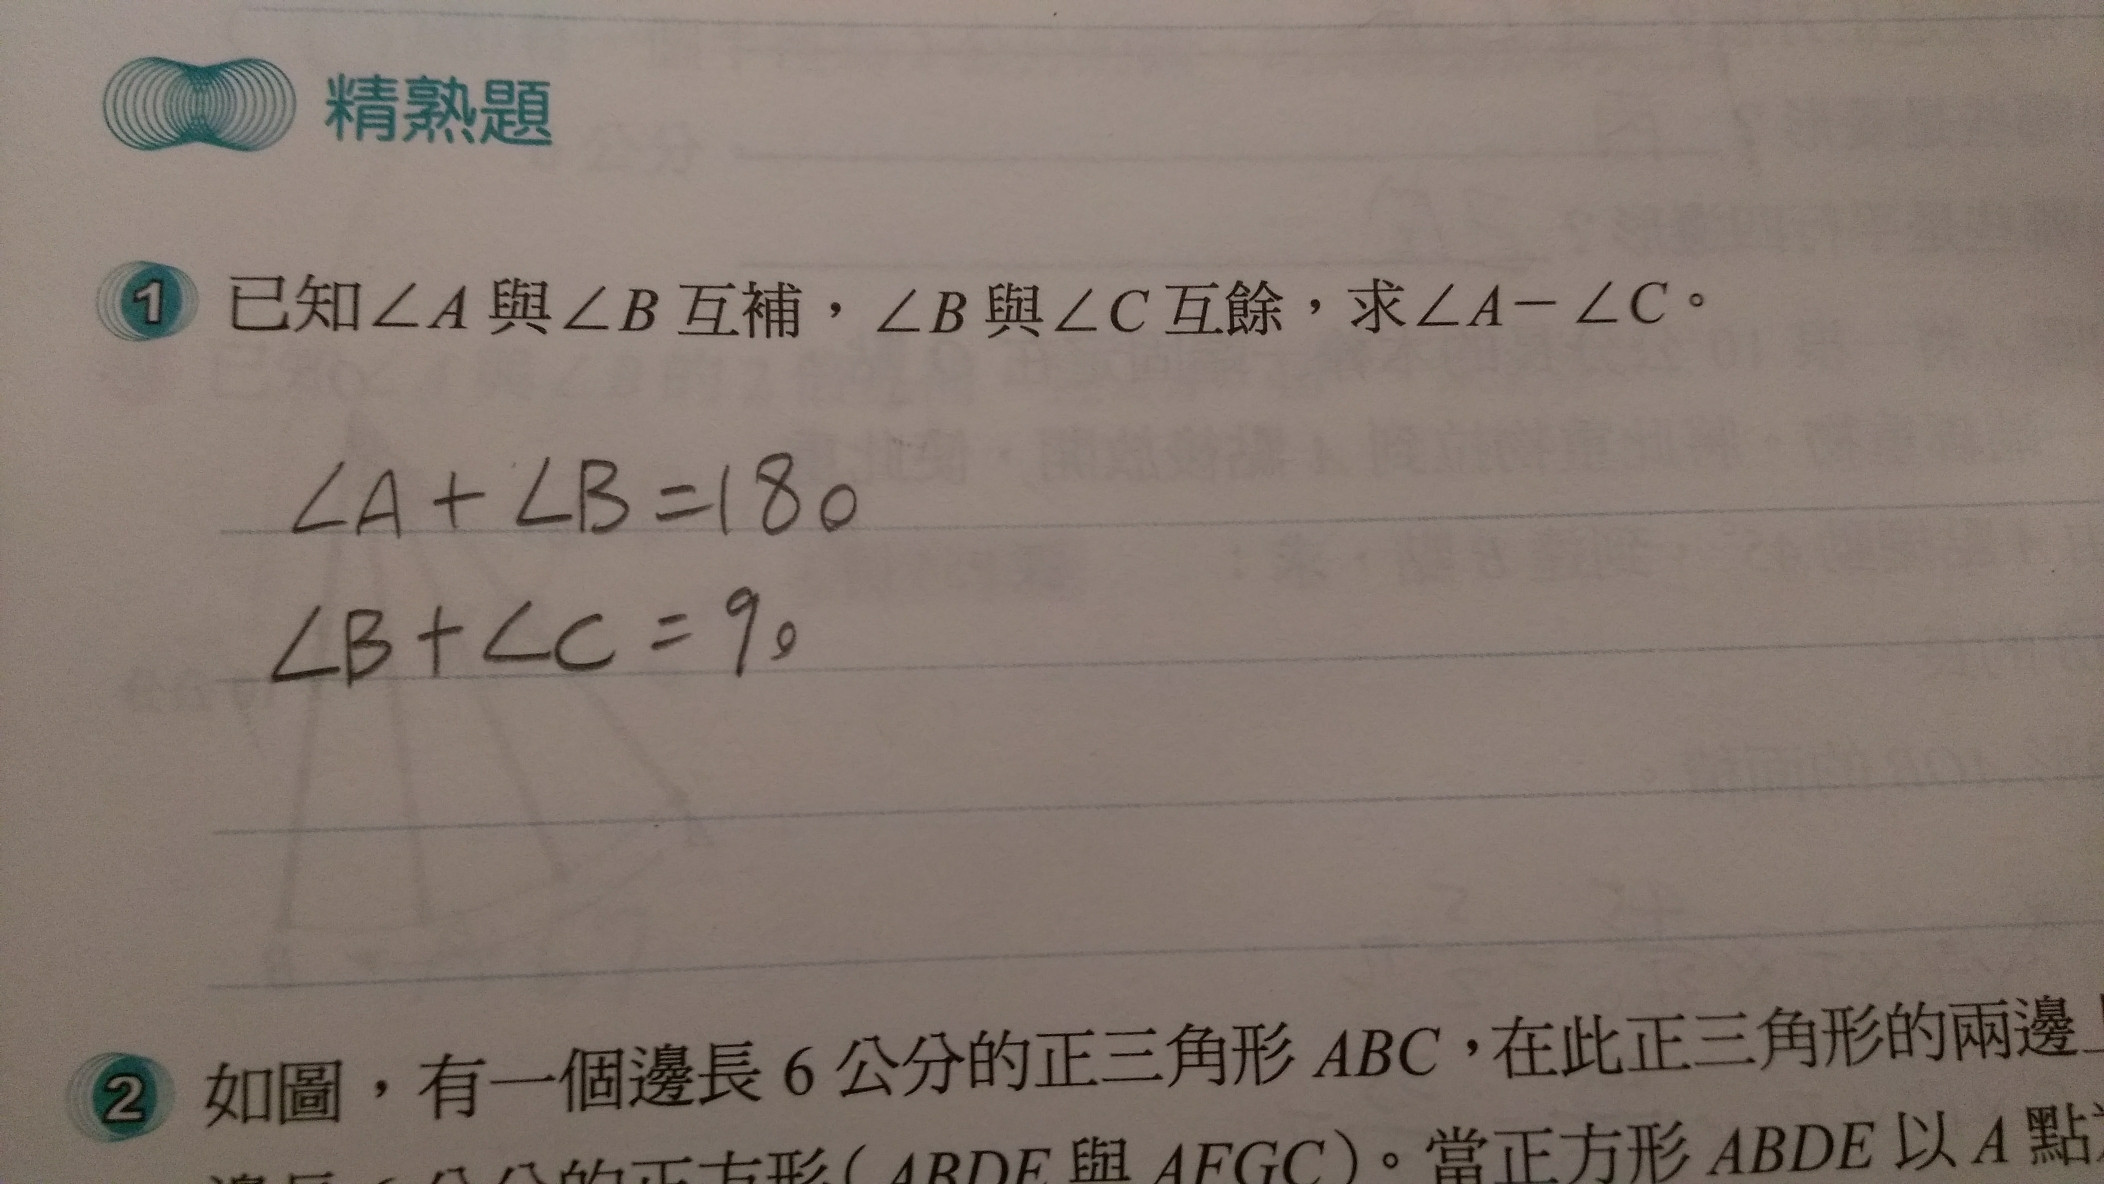 精熟題
1 已知∠A與∠B互補，∠B與∠C互餘，求∠A－∠C。
∠A+∠B=180
∠B+∠C=90
2 如圖，有一個邊長6公分的正三角形ABC，在此正三角形的兩邊
邊長6公分的正方形(ABDE與AFGC)。當正方形ABDE以A點